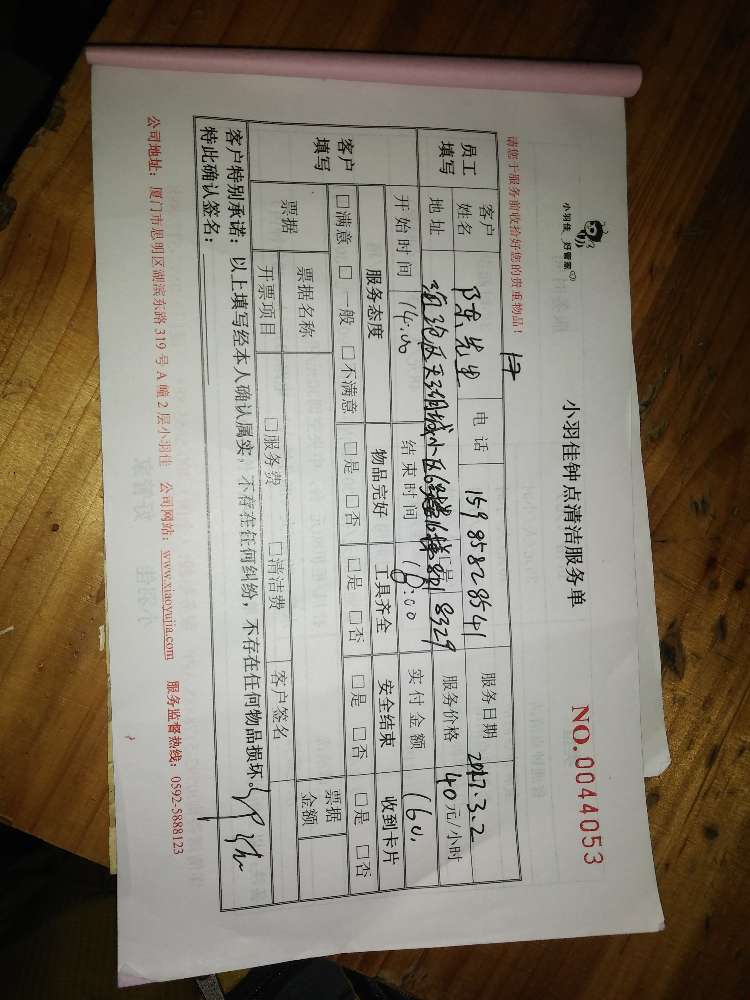 小羽佳 好管家
小羽佳钟点清洁服务单
NO.0044053
请您于服务前收拾好您的贵重物品!
员工填写
客户姓名 陈先生 电话 15985828541 服务日期 2017.3.2
地址 8329 服务价格 40元/小时
开始时间 14:00 结束时间 18:00 实付金额 160.
客户填写
服务态度 物品完好 工具齐全 安全结束 收到卡片
□满意 □一般 □不满意 □是 □否 □是 □否 □是 □否 □是 □否
票据 票据名称 客户签名 票据金额
开票项目 □服务费 □清洁费
客户特别承诺:以上填写经本人确认属实,不存在任何纠纷,不存在任何物品损坏。
特此确认签名:
公司地址:厦门市思明区湖滨东路319号A幢2层小羽佳 公司网站:www.xiaoyujia.com 服务监督热线:0592-5888123